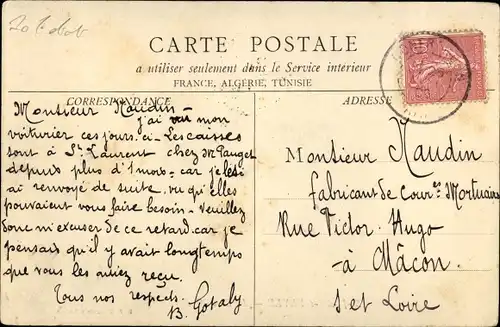 CARTE POSTALE
a utiliser seulement dans le Service interieur
FRANCE, ALGÉRIE, TUNISIE
CORRESPONDANCE
ADRESSE
Monsieur Naudin
j'ai vu mon
voiturier ces jours-ci - Les caisses
sont à St Laurent chez M. Pauget
depuis plus d'1 mois - car je les
ai renvoyé de suite, vu qu'elles
pouvaient vous faire besoin - Veuillez
donc m'excuser de ce retard car je
pensais qu'il y avait longtemps
que vous les aviez reçu.
Tous nos respects.
B. Gotaly
Monsieur Naudin
fabricant de Cour<sup>nes</sup> Mortuaires
Rue Victor Hugo
à Mâcon
S et Loire